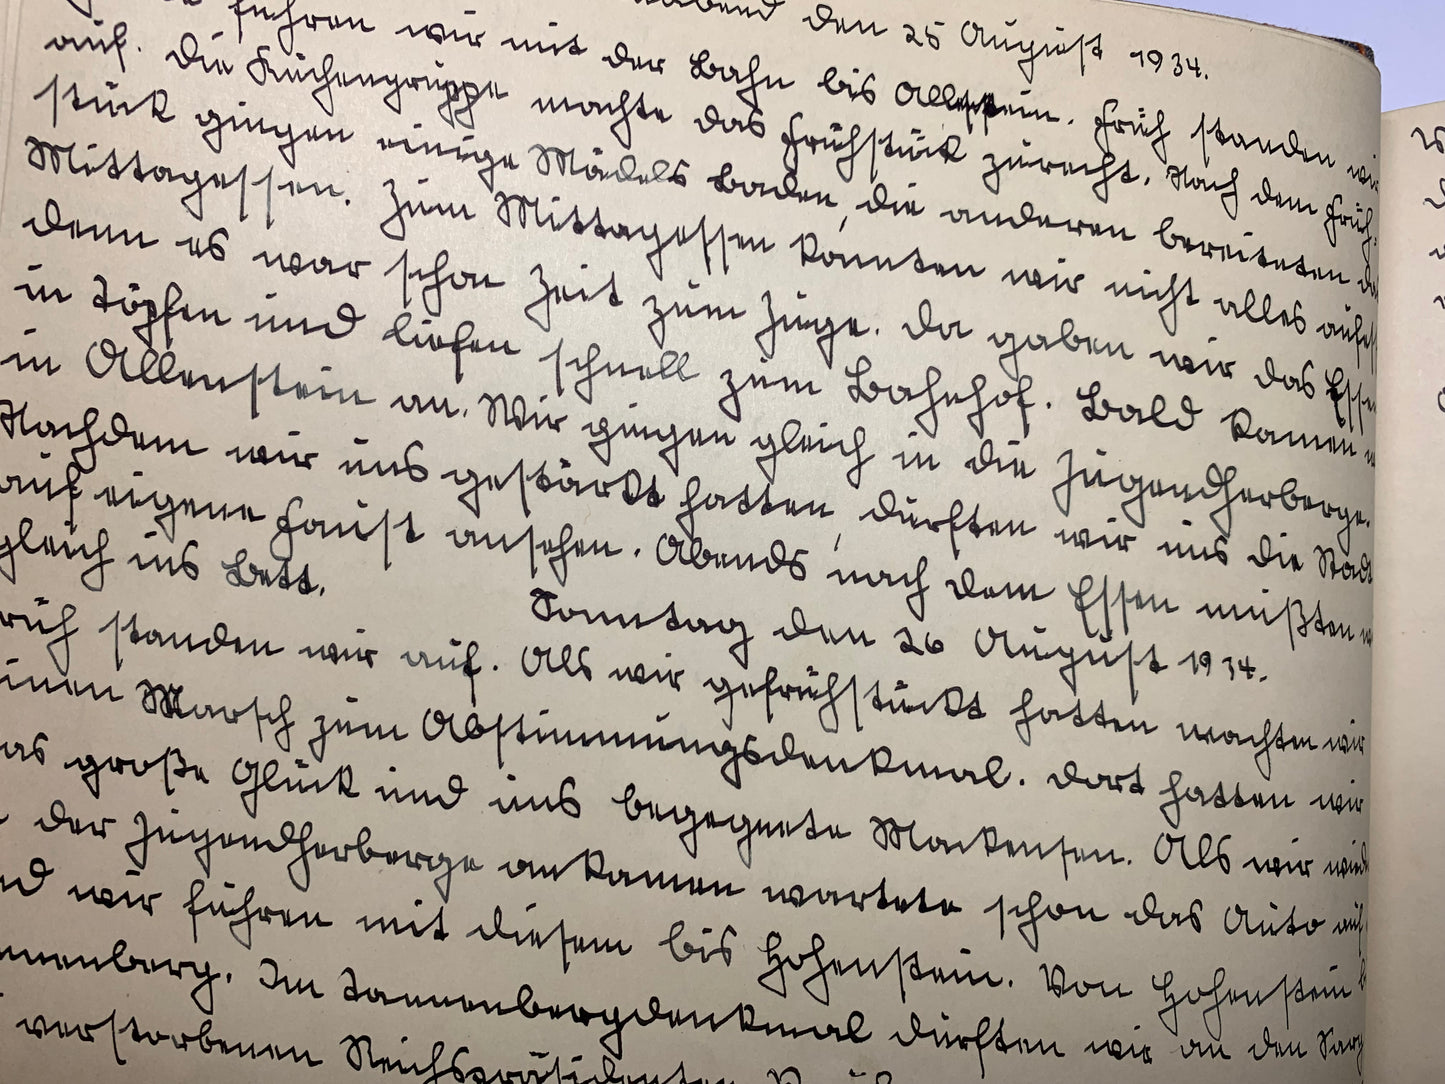 den 25 August 1934.
fuhren wir mit der Bahn bis Allenstein. Früh standen wir
auf. Die Küchengruppe machte das Frühstück zurecht. Nach dem Früh-
stück gingen einige Mädels Baden, die anderen bereiteten da
Mittagessen. Zum Mittagessen konnten wir nicht alles aufess
denn es war schon Zeit zum Zuge. Da gaben wir das Essen
in Töpfen und liefen schnell zum Bahnhof. Bald kamen w
in Allenstein an. Wir gingen gleich in die Jugendherberge.
Nachdem wir uns gestärkt hatten, durften wir uns die Stadt
auf eigene Faust ansehen. Abends nach dem Essen mußten w
gleich ins Bett.
Sonntag den 26 August 1934.
rüh standen wir auf. Als wir gefrühstückt hatten machten wir
inen Marsch zum Abstimmungsdenkmal. Dort hatten wir
as große Glück und uns begegnete Mackensen. Als wir wied
der Jugendherberge ankamen wartete schon das Auto auf
nd wir fuhren mit diesem bis Hohenstein. Von Hohenstein b
nnenberg. Im Tannenbergdenkmal durften wir an den Sarg
verstorbenen Reichspräsidenten